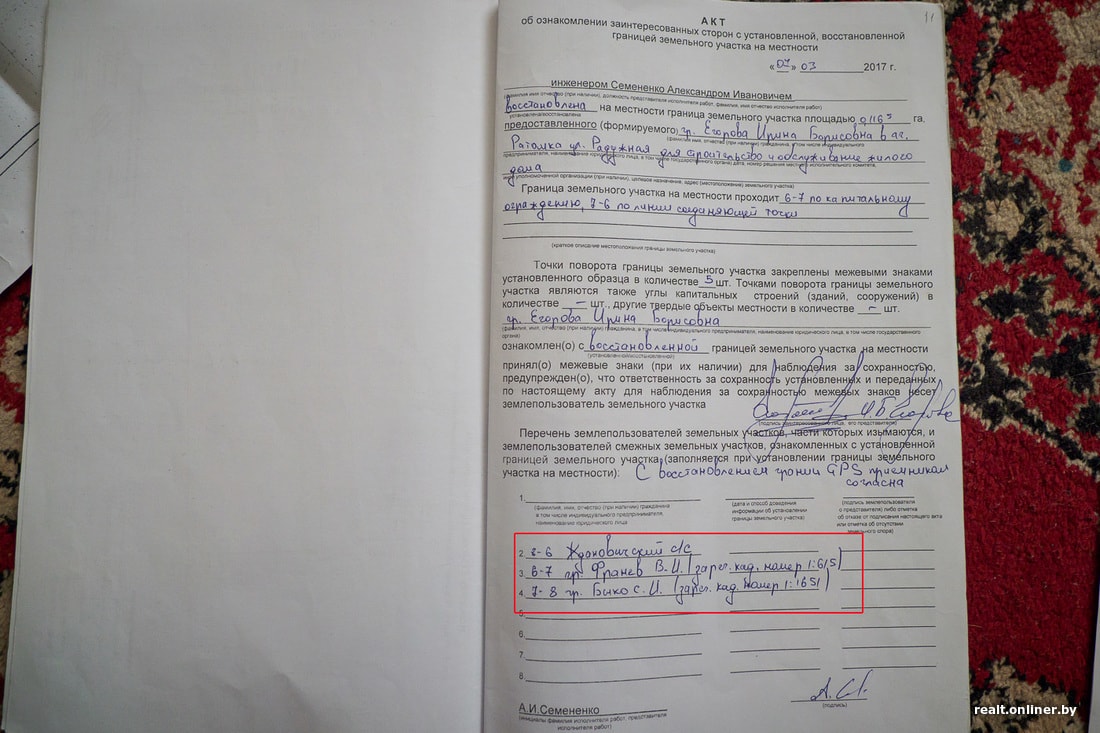 11
АКТ
об ознакомлении заинтересованных сторон с установленной, восстановленной
границей земельного участка на местности
«07» 03 2017 г.
инженером Семененко Александром Ивановичем
фамилия имя отчество (при наличии), должность представителя исполнителя работ, фамилия, имя отчество исполнителя работ)
восстановлена на местности граница земельного участка площадью га.
установлена/восстановлена
предоставленного (формируемого) гр. Егорова Ирина Борисовна в аг.
(фамилия, имя, отчество (при наличии) гражданина, в том числе индивидуального
Ратомка ул. Радужная для строительство и обслуживание жилого
предпринимателя, наименование юридического лица, в том числе государственного органа) дата, номер решения местного исполнительного комитета,
дома
уполномоченной организации (при наличии), целевое назначение, адрес (местоположение) земельного участка)
Граница земельного участка на местности проходит 6-7 по капитальному
ограждению, 7-6 по линии соединяющей точки
(краткое описание местоположения границы земельного участка)
Точки поворота границы земельного участка закреплены межевыми знаками
установленного образца в количестве 5 шт. Точками поворота границы земельного
участка являются также углы капитальных строений (зданий, сооружений) в
количестве – шт., другие твердые объекты местности в количестве – шт.
гр. Егорова Ирина Борисовна
(фамилия, имя, отчество (при наличии) гражданина, в том числе индивидуального предпринимателя, наименование юридического лица, в том числе государственного
органа)
ознакомлен(о) с восстановленной границей земельного участка на местности
(установленной/восстановленной)
принял(о) межевые знаки (при их наличии) для наблюдения за сохранностью,
предупрежден(о), что ответственность за сохранность установленных и переданных
по настоящему акту для наблюдения за сохранностью межевых знаков несет
землепользователь земельного участка И.Б Егорова
(подпись заинтересованного лица, его представителя)
Перечень землепользователей земельных участков, части которых изымаются, и
землепользователей смежных земельных участков, ознакомленных с установленной
границей земельного участка (заполняется при установлении границы земельного
участка на местности): С восстановлением GPS приемником
согласна
1.
(фамилия, имя, отчество (при наличии) гражданина
в том числе индивидуального предпринимателя,
наименование юридического лица
(дата и способ доведения
информации об установлении
границы земельного участка)
(подпись землепользователя
о представителя) либо отметка
об отказе от подписания настоящего акта
или отметка об отсутствии
земельного спора)
2. Ждановичский с/с
3. 6-7 гр. Франев В.И. (зарег. кад. номер
4. 7-8 гр. Быко с. И. (зарег. кад. номер 1:1651)
5.
6.
7.
8.
А.И.Семененко
(инициалы фамилия исполнителя работ, представителя
исполнителя работ)
(подпись)
realt.onliner.by